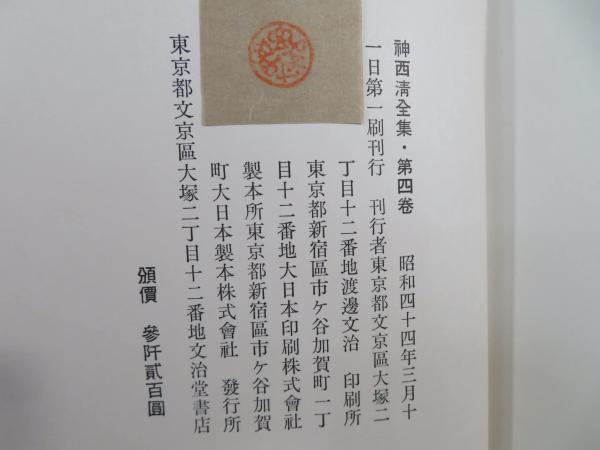 神西淸全集・第四卷　昭和四十四年三月十
一日第一刷刊行　刊行者東京都文京區大塚二
丁目十二番地渡邊文治　印刷所
東京都新宿區市ケ谷加賀町一丁
目十二番地大日本印刷株式會社
製本所東京都新宿區市ケ谷加賀
町大日本製本株式會社　發行所
東京都文京區大塚二丁目十二番地文治堂書店
頒價　參阡貳百圓